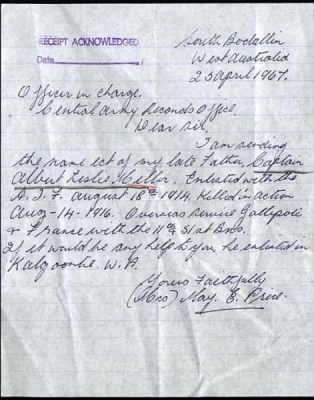 RECEIPT ACKNOWLEDGED
Date
South Bodallin
West Australia
25 April 1967.
Officer in charge.
Central Army Records Office.
Dear Sir,
I am sending
the name ect of my late Father, Captain
Albert Leslie Hellor. Enlisted with the
A.I.F. august 18th 1914. Killed in action
Aug-14-1916. Overseas service Gallipoli
& France with the 11th 51st Bns.
If it would be any help to you, he enlisted in
Kalgoorlie W.A.
Yours Faithfully
(Mrs) May. E. Price.